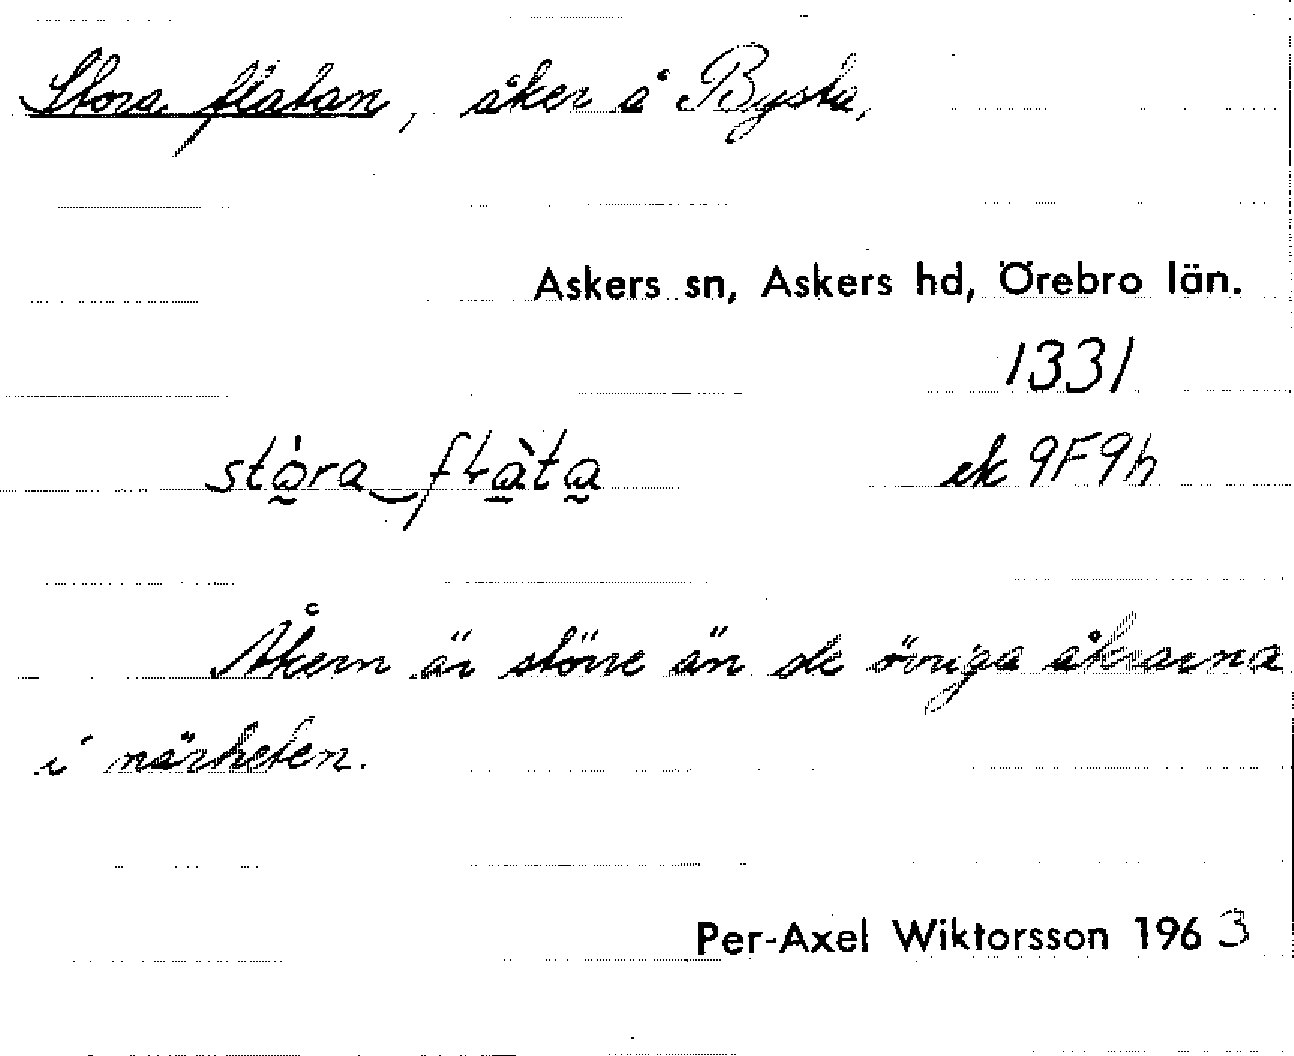 Stora flatan, åker å Bysta,
Askers sn, Askers hd, Örebro län.
1331
ek 9F9h
Åkern är större än de övriga åkrarna
i närheten.
Per-Axel Wiktorsson 1963